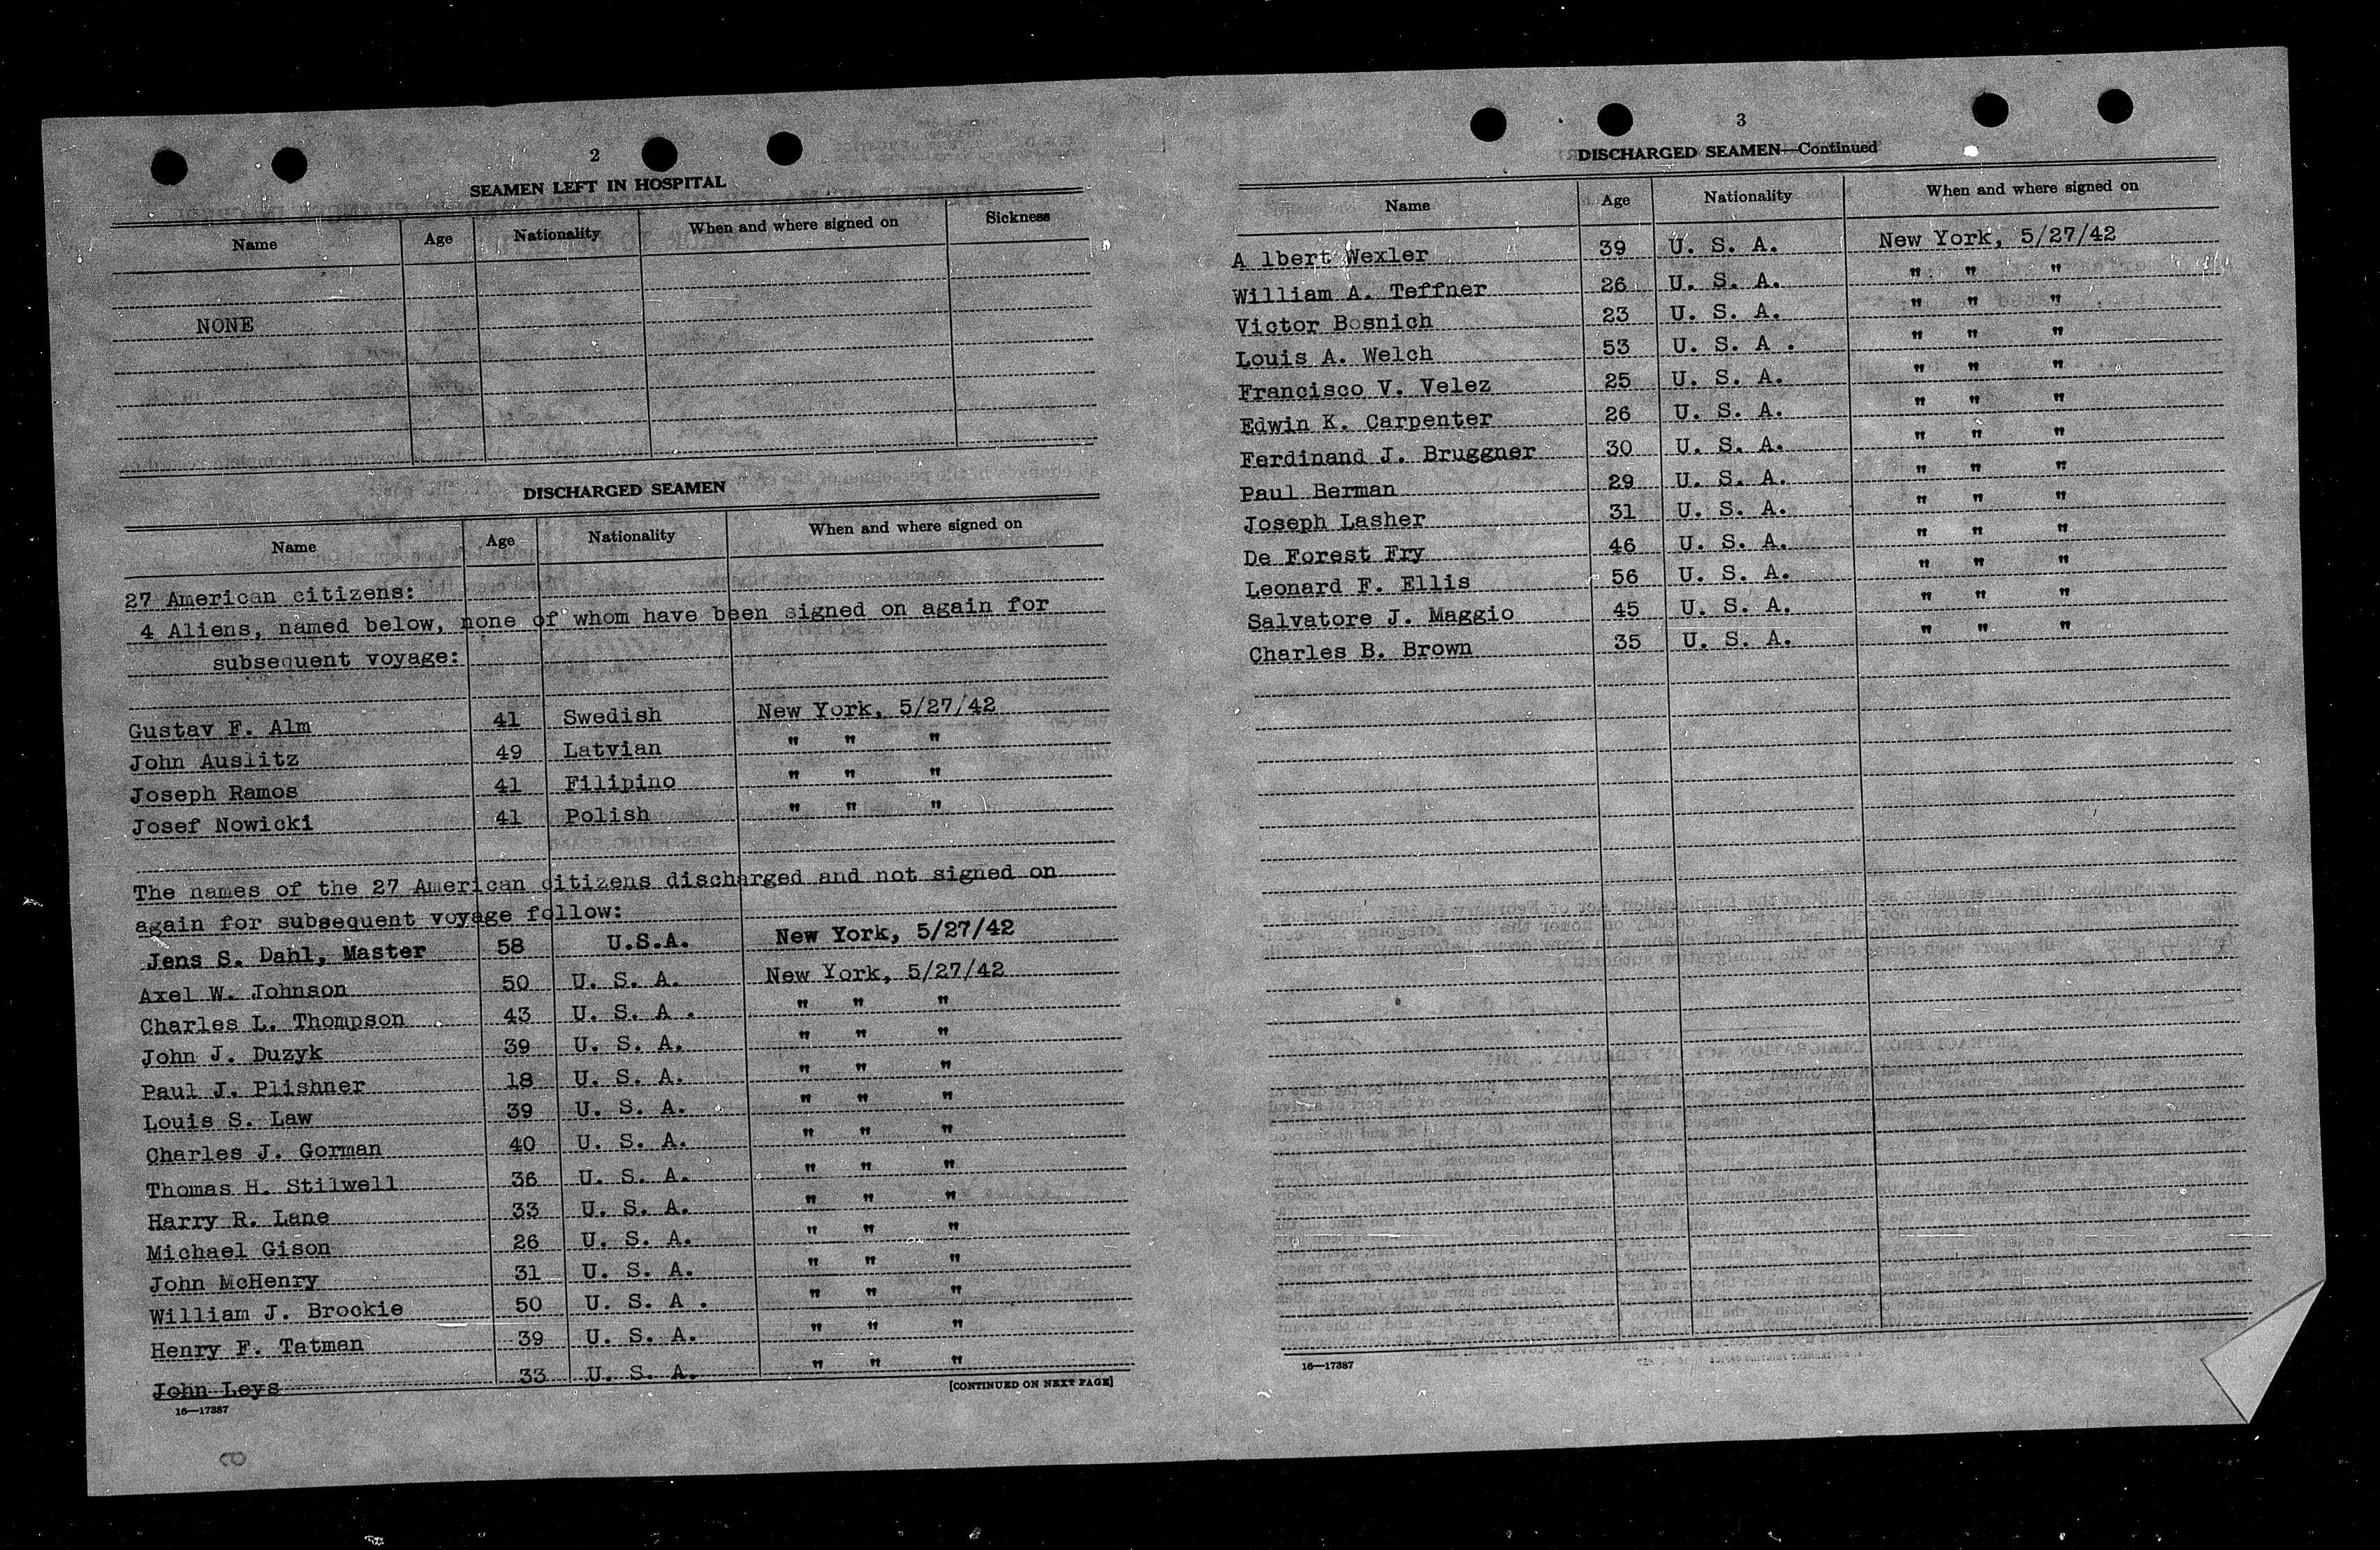 2
SEAMEN LEFT IN HOSPITAL
Name Age Nationality When and where signed on Sickness
NONE
DISCHARGED SEAMEN
Name Age Nationality When and where signed on
27 American citizens:
4 Aliens, named below, none of whom have been signed on again for
subsequent voyage:
Gustav F. Alm 41 Swedish New York, 5/27/42
John Auslitz 49 Latvian " " "
Joseph Ramos 41 Filipino " " "
Josef Nowicki 41 Polish " " "
The names of the 27 American citizens discharged and not signed on
again for subsequent voyage follow:
Jens S. Dahl, Master 58 U.S.A. New York, 5/27/42
Axel W. Johnson 50 U. S. A. New York, 5/27/42
Charles L. Thompson 43 U. S. A . " " "
John J. Duzyk 39 U. S. A. " " "
Paul J. Plishner 18 U. S. A. " " "
Louis S. Law 39 U. S. A. " " "
Charles J. Gorman 40 U. S. A. " " "
Thomas H. Stilwell 36 U. S. A. " " "
Harry R. Lane 33 U. S. A. " " "
Michael Gison 26 U. S. A. " " "
John McHenry 31 U. S. A. " " "
William J. Brockie 50 U. S. A . " " "
Henry F. Tatman 39 U. S. A. " " "
John Leys 33 U. S. A. " " "
16—17387
[CONTINUED ON NEXT PAGE]
3
DISCHARGED SEAMEN—Continued
Name Age Nationality When and where signed on
A lbert Wexler 39 U. S. A. New York, 5/27/42
William A. Teffner 26 U. S. A. " " "
Victor Bosnich 23 U. S. A. " " "
Louis A. Welch 53 U. S. A . " " "
Francisco V. Velez 25 U. S. A. " " "
Edwin K. Carpenter 26 U. S. A. " " "
Ferdinand J. Bruggner 30 U. S. A. " " "
Paul Berman 29 U. S. A. " " "
Joseph Lasher 31 U. S. A. " " "
De Forest Fry 46 U. S. A. " " "
Leonard F. Ellis 56 U. S. A. " " "
Salvatore J. Maggio 45 U. S. A. " " "
Charles B. Brown 35 U. S. A. " " "
16—17387